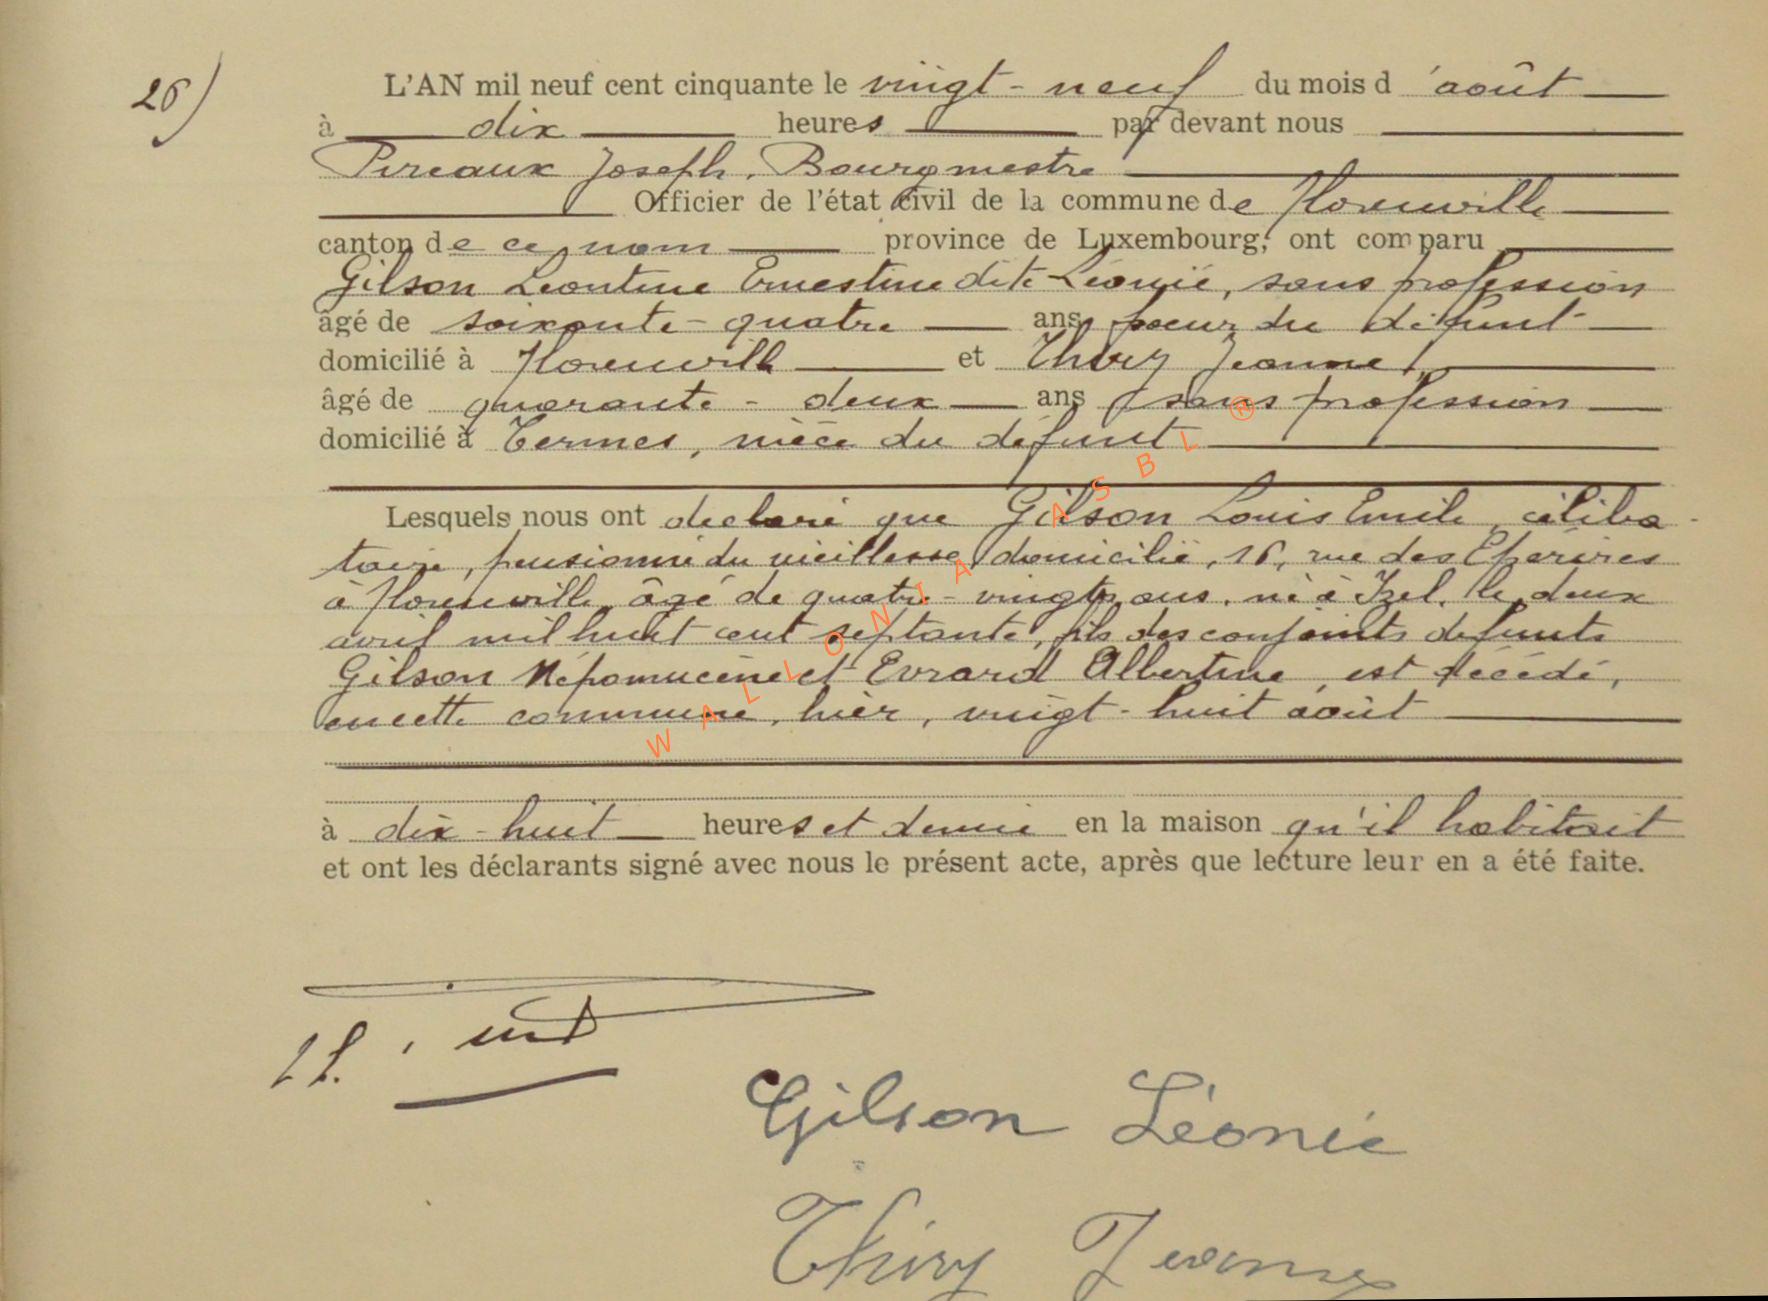 26)
L'AN mil neuf cent cinquante le vingt-neuf du mois d'août
à dix heures par devant nous
Pireaux Joseph, Bourgmestre
Officier de l'état civil de la commune de Florenville
canton de ce nom province de Luxembourg, ont comparu
Gilson Léontine Ernestine dite Léonie, sans profession
âgé de soixante-quatre ans sœur du défunt
domicilié à Florenville et Thiry Jeanne
âgé de quarante-deux ans sans profession
domicilié à Termes, nièce du défunt
Lesquels nous ont déclaré que Gilson Louis Emile, céliba-
taire, pensionné du vieillesse, domicilié, 16, rue des Epérires
à Florenville, âgé de quatre-vingts ans, né à Izel, le deux
avril mil huit cent septante, fils des conjoints défunts
Gilson Népomucène et Evrard Albertine, est décédé,
en cette commune, hier, vingt-huit août
à dix-huit heures et demie en la maison qu'il habitait
et ont les déclarants signé avec nous le présent acte, après que lecture leur en a été faite.
Gilson Léonie
Thiry Jeanne
WALLONIA ASBL ®